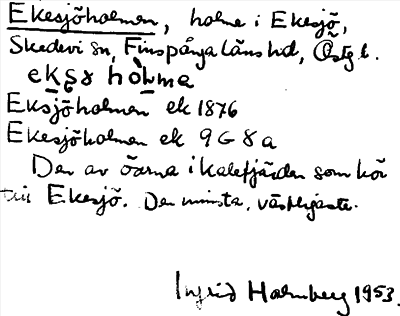 Ekesjöholmen, holme i Ekesjö,
Skedevi sn, Finspånga läns hd, Östg l.
Eksjöholmen ek 1876
Ekesjöholmen ek 9 G 8 a
Den av öarna i Kalvfjärden som hör
till Ekesjö. Den minsta, västligaste.
Ingrid Holmberg 1953.